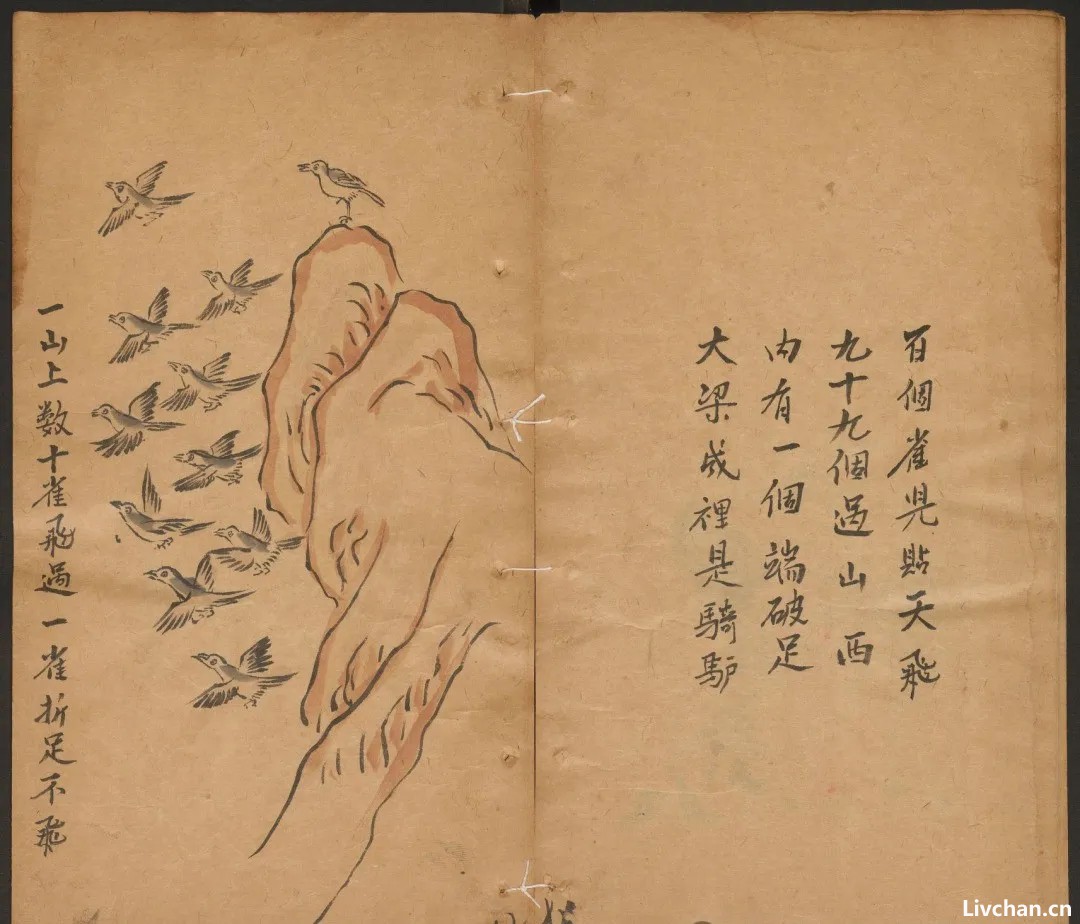 百個雀児貼天飛
九十九個過山西
内有一個端破足
大梁成裡是騎驴
一山上数十雀飛過一雀折足不飛
Livchan.cn